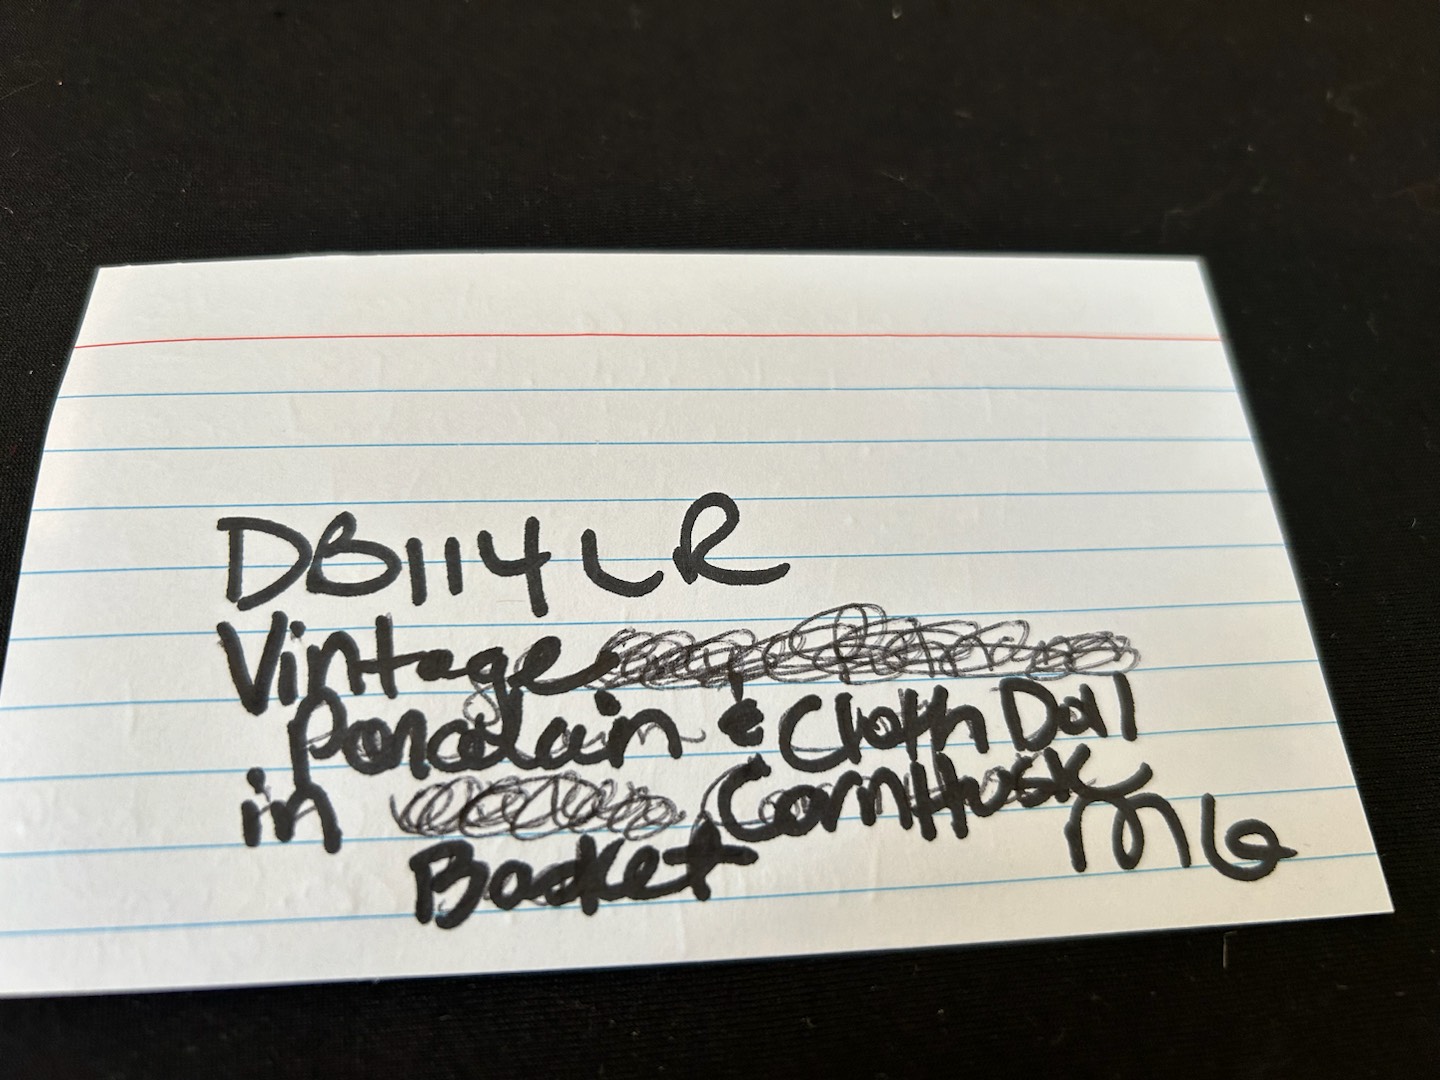 DB114LR
Vintage
Porcelain & Cloth Doll
in CornHusk
Basket MG